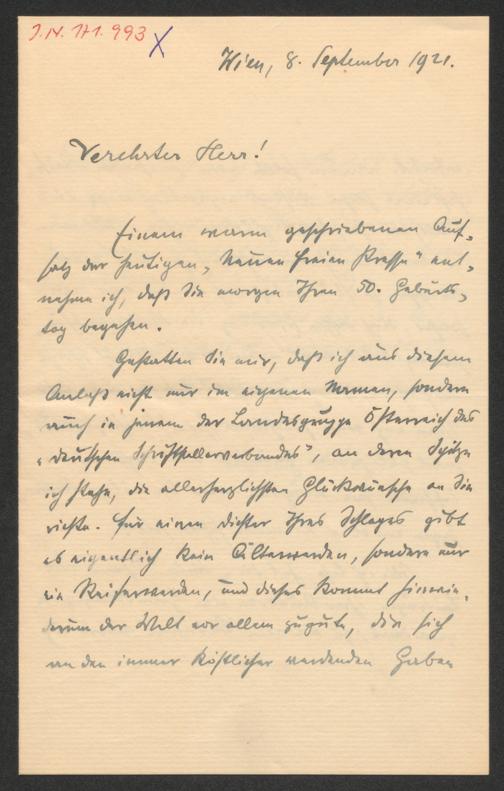 J.N. 171.993
Wien, 8. September 1921.
Verehrter Herr!
Einem warm geschriebenen Auf-
satz der heutigen „Neuen Freien Presse" ent-
nehme ich, daß Sie morgen Ihren 50. Geburts-
tag begehen.
Gestatten Sie mir, daß ich aus diesem
Anlaß nicht nur im eigenen Namen, sondern
auch in jenem der Landesgruppe Österreich des
„Deutschen Schriftstellerverbandes", an deren Spitze
ich stehe, die allerherzlichsten Glückwünsche an Sie
richte. Für einen Dichter Ihres Schlages gibt
es eigentlich kein Älterwerden, sondern nur
ein Reiferwerden, und dieses kommt hinwie-
derum der Welt vor allem zugute, die sich
an den immer köstlicher werdenden Gaben